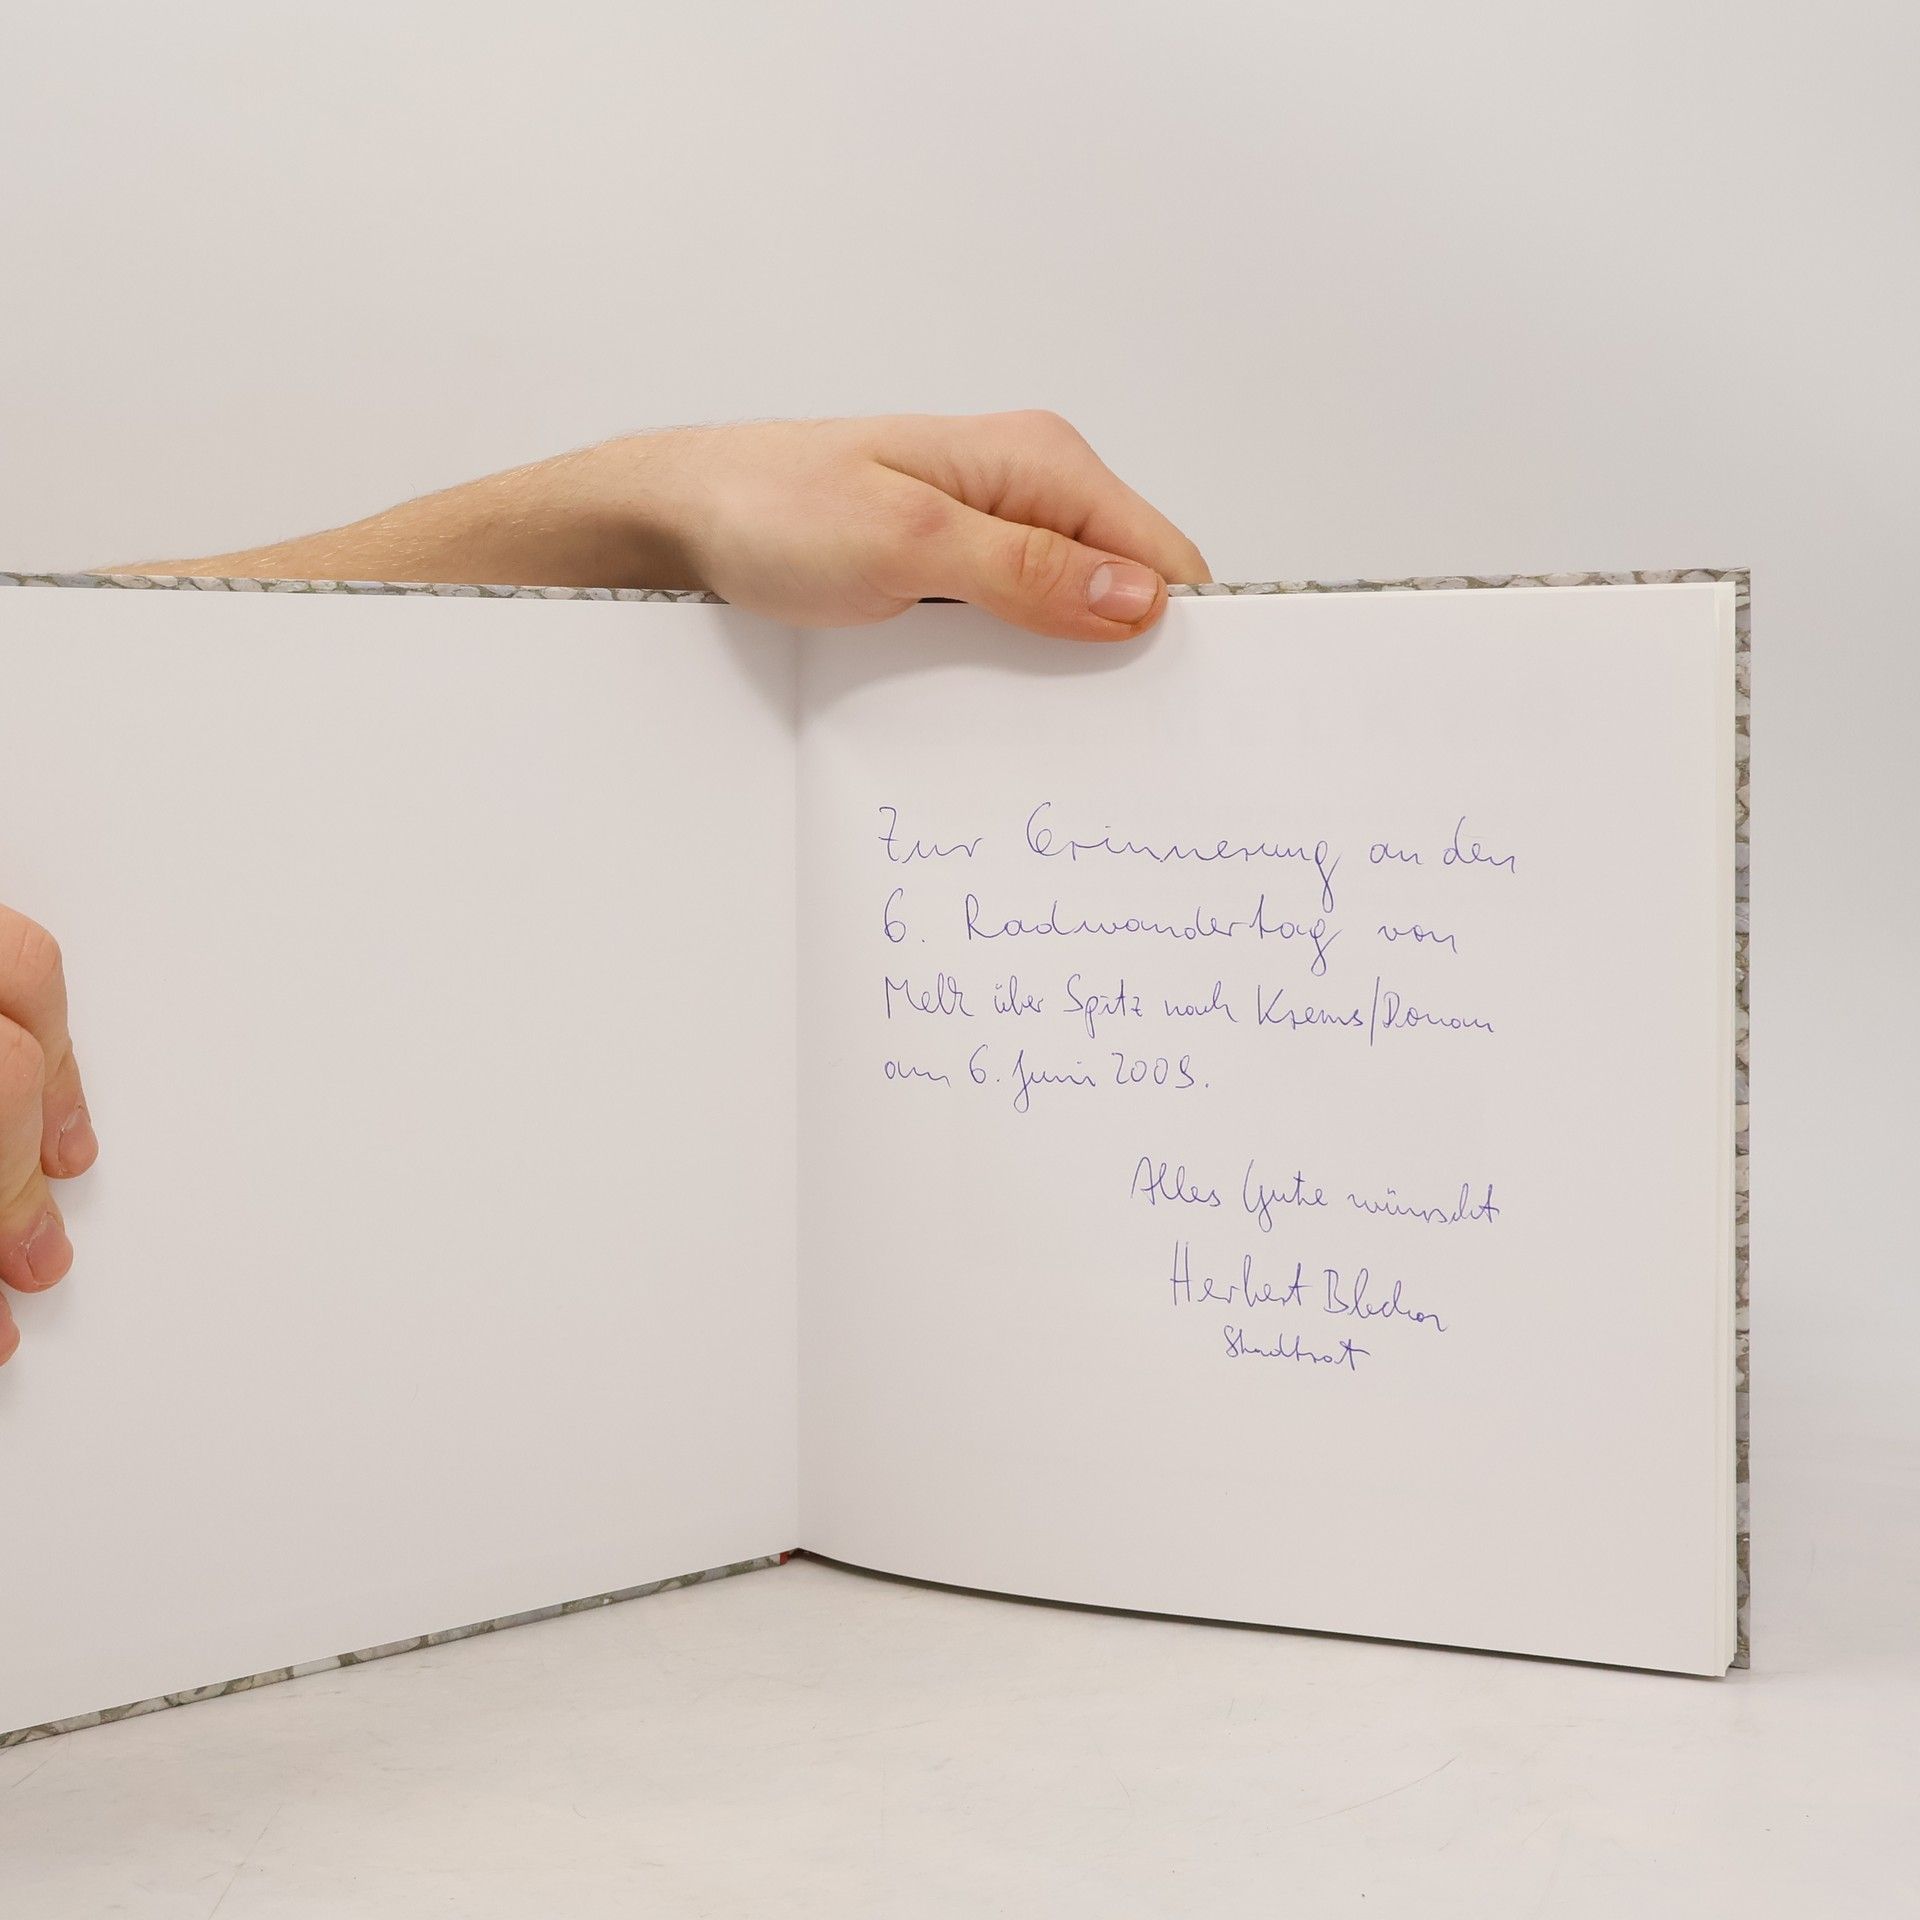 Zur Erinnerung an den
6. Radwandertag von
Melk über Spitz nach Krems/Donau
am 6. Juni 2009.
Alles Gute wünscht
Herbert
Stadtrat